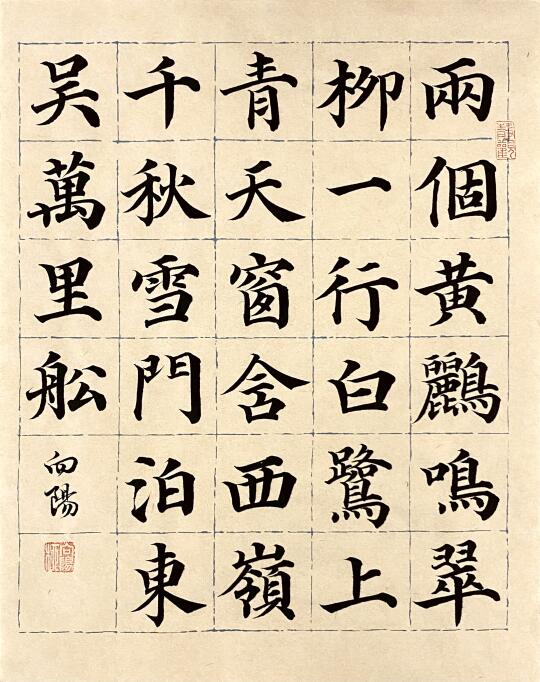 兩個黃鸝鳴翠
柳一行白鷺上
青天窗含西嶺
千秋雪門泊東
吴萬里舩
向陽